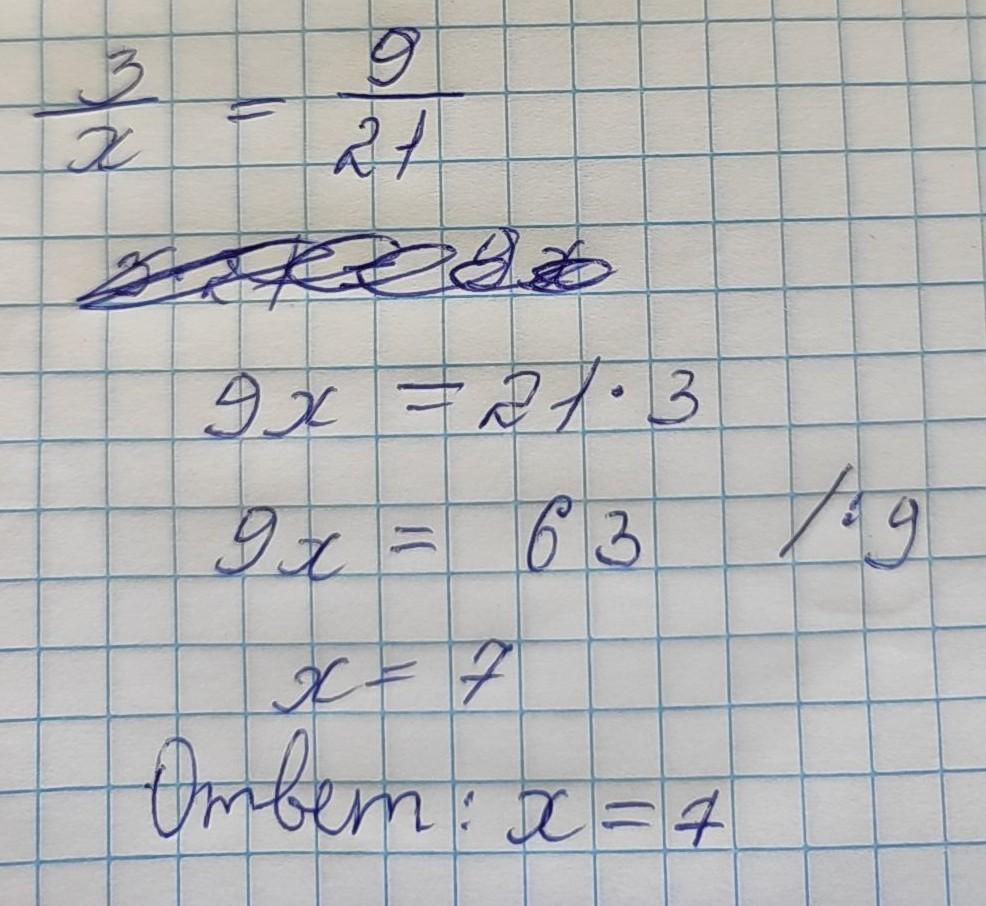 3/x = 9/21
9x = 21·3
9x = 63 /:9
x = 7
Ответ: x = 7